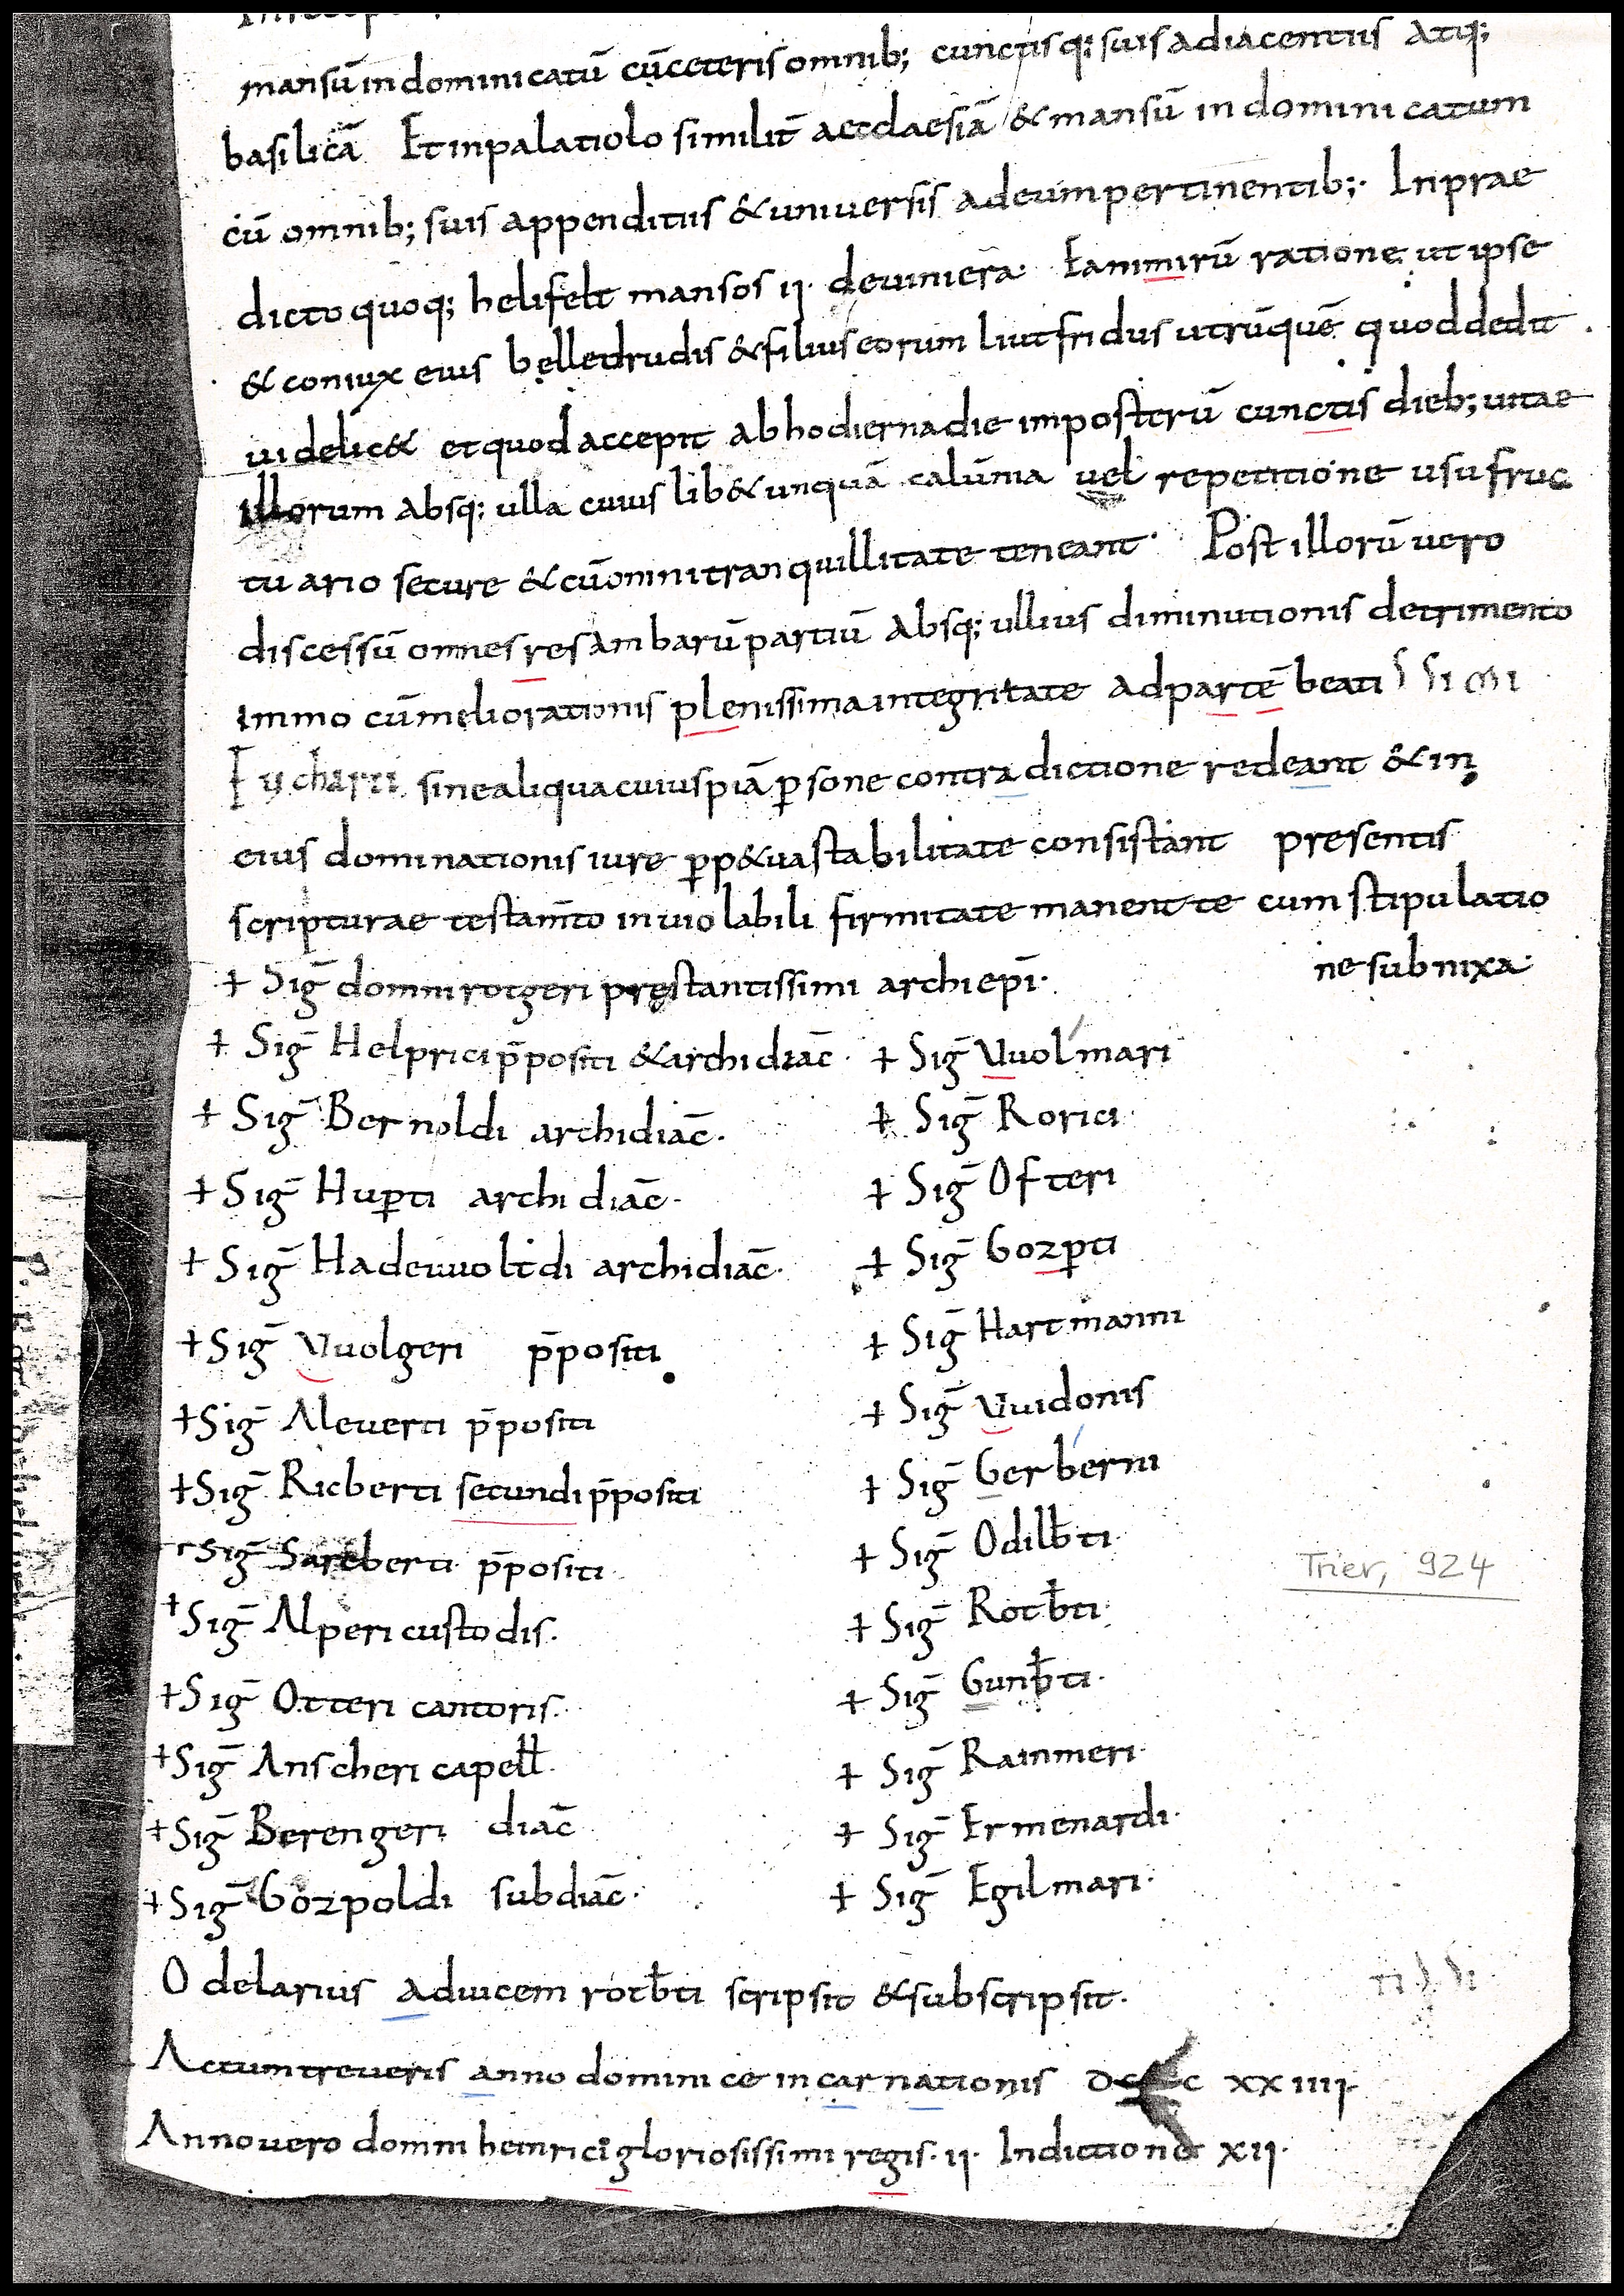 mansū in dominicatū cū ceteris omnib; cunctisq; suis adiacentiis Atq;
basilicā Et in palatiolo similit̄ aecclaesiā & mansū in dominicatum
cū omnib; suis appenditiis & universis ad eum pertinentib;. In prae
dicto quoq; helifelt mansos ii. de viniera. Ea nimirū ratione. ut ipse
& coniux eius belletrudis & filius eorum liutfridus utrūquē quod dedit
videlic& et quod accepit ab hodierna die imposterū cunctis dieb; vitae
illorum absq; ulla cuius lib& unquā calūnia vel repetitione usufruc
tuario secure & cū omni tranquillitate teneant. Post illorū vero
discessū omnes res ambarū partiū absq; ullius diminutionis detrimento
immo cū meliorationis plenissima integritate ad partē beatissimi
Eucharii sine aliqua cuiuspiā p̱sone contradictione redeant & in
eius dominationis iure p̱p&ua stabilitate consistant presentis
scripturae testam̄to inviolabili firmitate manente cum stipulatio
ne subnixa.
+ Siḡ domni rotgeri pręstantissimi archiepī.
+ Siḡ Helprici p̄positi & archidiac̄. + Siḡ Vuolmari
+ Siḡ Bernoldi archidiac̄. + Siḡ Rorici
+ Siḡ Hup̱ti archidiac̄. + Siḡ Ofteri
+ Siḡ Hadeuuoltdi archidiac̄. + Siḡ Gozp̱ti
+ Siḡ Vuolgeri p̄positi. + Siḡ Hartmanni
+ Siḡ Aleverti p̄positi + Siḡ Vuidonis
+ Siḡ Ricberti secundi p̄positi + Siḡ Gerberni
Siḡ Sareberti p̄positi. + Siḡ Odilƀti.
+ Siḡ Alperi custodis. + Siḡ Rotƀti.
+ Siḡ Otteri cantoris. + Siḡ Gunƀti.
+ Siḡ Anscheri capeƚƚ. + Siḡ Rainmeri.
+ Siḡ Berengeri diac̄ + Siḡ Ermenardi.
+ Siḡ Gozpoldi subdiac̄. + Siḡ Egilmari.
Trier, 924
Odelarius advicem rotƀti scripsit & subscripsit.
Actum treveris anno dominice incarnationis XXIIII.
Anno vero domni heinrici gloriosissimi regis. ii. Indictione xii.